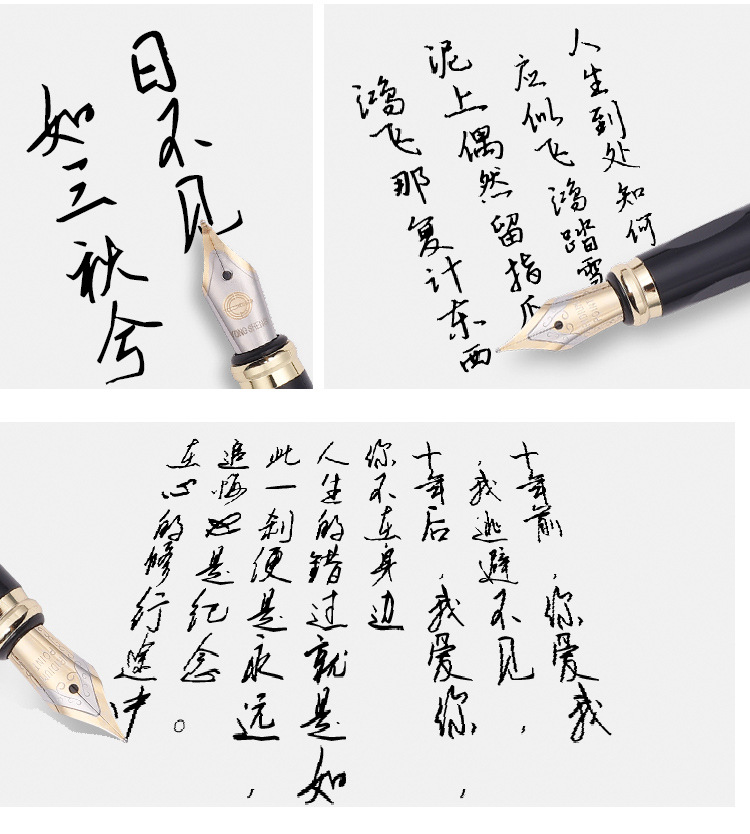 日不见
如三秋兮
人生到处知何
应似飞鸿踏雪
泥上偶然留指爪
鸿飞那复计东西
十年前，你爱我
，我逃避不见，
十年后，我爱你，
你不在身边
人生的错过就是如
此一刹便是永远，
追悔是纪念。
在心的修行途中